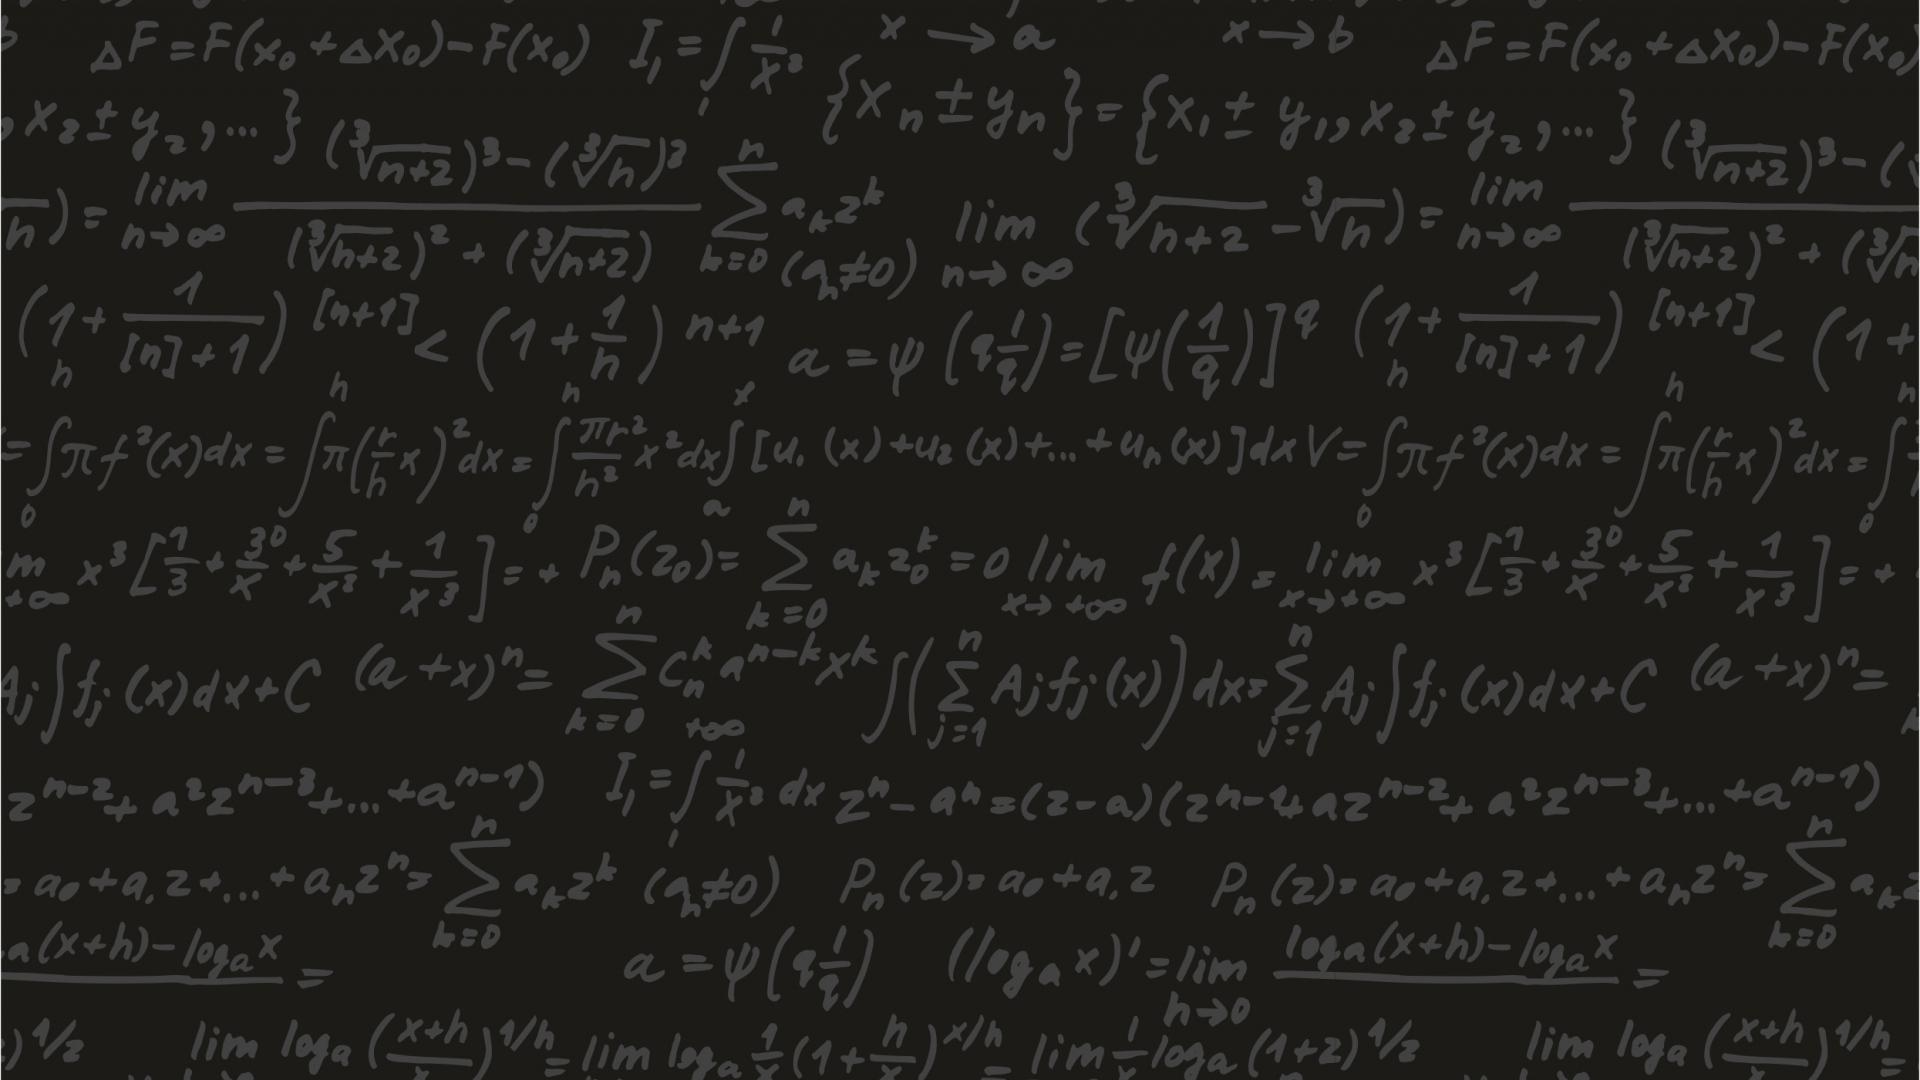 b ΔF = F(x₀ + Δx₀) − F(x₀) I₁ = ∫ 1/x³ x → a x → b ΔF = F(x₀ + Δx₀) − F(x₀)
x₂ ± y₂, ... } {xₙ ± yₙ} = {x₁ ± y₁, x₂ ± y₂, ... }
n) = lim n→∞ ((∛n+2)³ − (∛n)³) / ((∛n+2)² + (∛n+2)) ∑ k=0 n aₖzᵏ (aₙ≠0) lim n→∞ (∛n+2 − ∛n) = lim n→∞ ((∛n+2)³ − ( / ((∛n+2)² + (∛n
(1 + 1/([n]+1))^[n+1] < (1 + 1/n)^n+1 a = ψ(q 1/q) = [ψ(1/q)]^q (1 + 1/([n]+1))^[n+1] < (1 +
= ∫₀ʰ πf²(x)dx = ∫ʰ π(r/h x)²dx = ∫₀ʰ πr²/h² x²dx ∫ₐˣ [u₁(x) + u₂(x) + ... + uₙ(x)]dx V = ∫₀ʰ πf²(x)dx = ∫ʰ π(r/h x)²dx = ∫₀
m +∞ x³[1/3 + 30/x + 5/x² + 1/x³] = + Pₙ(z₀) = ∑ k=0 n aₖz₀ᵏ = 0 lim x→+∞ f(x) = lim x→+∞ x³[1/3 + 30/x + 5/x² + 1/x³] = +
Aⱼ∫fⱼ(x)dx + C (a + x)ⁿ = ∑ k=0 n Cₙᵏ aⁿ⁻ᵏ xᵏ ∫(∑ j=1 n Aⱼfⱼ(x))dx = ∑ j=1 n Aⱼ∫fⱼ(x)dx + C (a + x)ⁿ =
zⁿ⁻² + a²zⁿ⁻³ + ... + aⁿ⁻¹) I₁ = ∫₁ +∞ 1/x³ dx zⁿ − aⁿ = (z − a)(zⁿ⁻¹ + azⁿ⁻² + a²zⁿ⁻³ + ... + aⁿ⁻¹)
= a₀ + a₁z + ... + aₙzⁿ = ∑ k=0 n aₖzᵏ (aₙ≠0) Pₙ(z) = a₀ + a₁z Pₙ(z) = a₀ + a₁z + ... + aₙzⁿ = ∑ k=0 n aₖz
a(x+h) − logₐx = a = ψ(q 1/q) (logₐx)' = lim h→0 (logₐ(x+h) − logₐx) / =
)^1/z lim logₐ((x+h)/x)^1/h = lim logₐ 1/x (1 + h/x)^x/h = lim 1/x logₐ(1+z)^1/z lim logₐ((x+h)/x)^1/h =